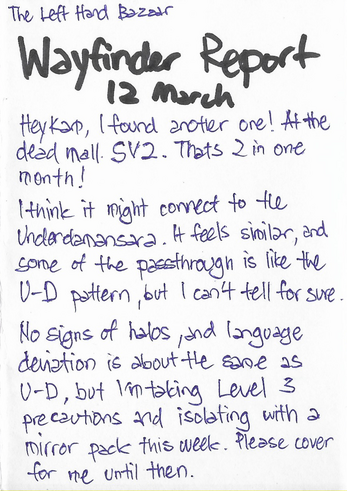 The Left Hand Bazaar
Wayfinder Report
12 March
Hey Kam, I found another one! At the
dead mall. SV2. Thats 2 in one
month!
I think it might connect to the
Underdamansara. It feels similar, and
some of the passthrough is like the
U-D pattern, but I can't tell for sure.
No signs of halos, and language
deviation is about the same as
U-D, but I'm taking Level 3
precautions and isolating with a
mirror pack this week. Please cover
for me until then.